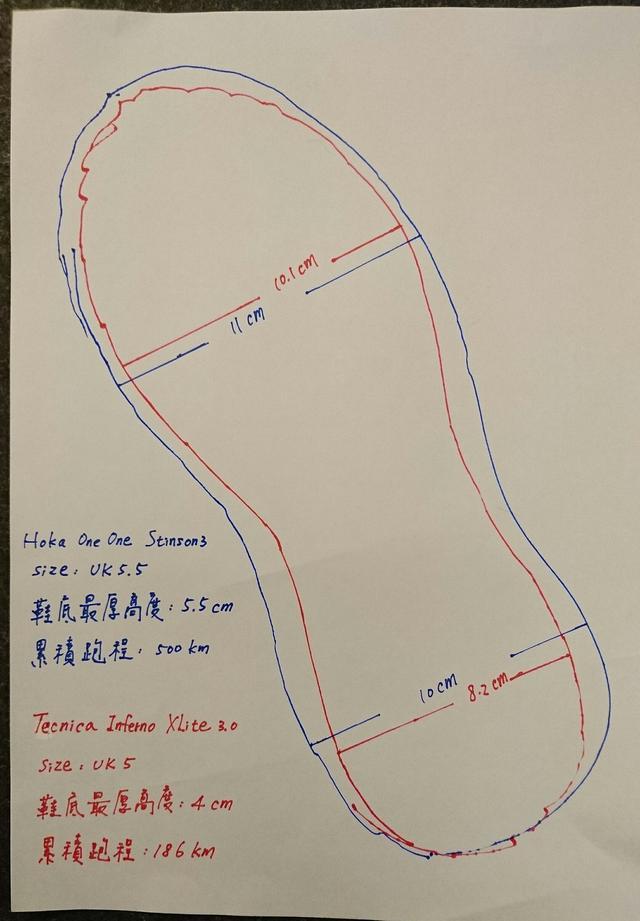 10.1 cm
11 cm
Hoka One One Stinson3
size: UK 5.5
鞋底最厚高度: 5.5 cm
累積跑程: 500 km
10 cm
8.2 cm
Tecnica Inferno XLite 3.0
size: UK 5
鞋底最厚高度: 4 cm
累積跑程: 186 km